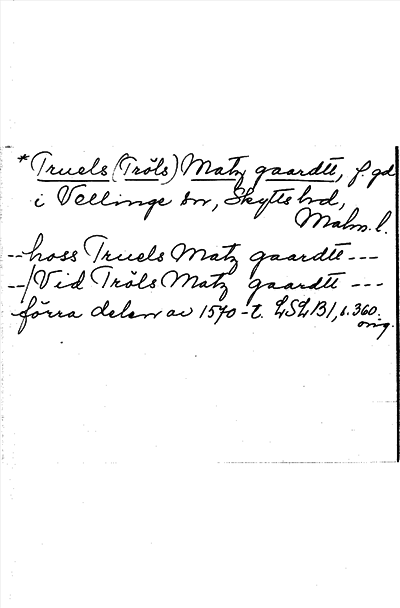 *Truels (Tröls) Matz gaardtt, f. gd
i Vellinge sn, Skytts hd,
Malm. l.
-- hoss Truels Matz gaardtt ---
--/Vid Tröls Matz gaardtt ---
förra delen av 1570-t. LSLB1, s. 360.
orig.